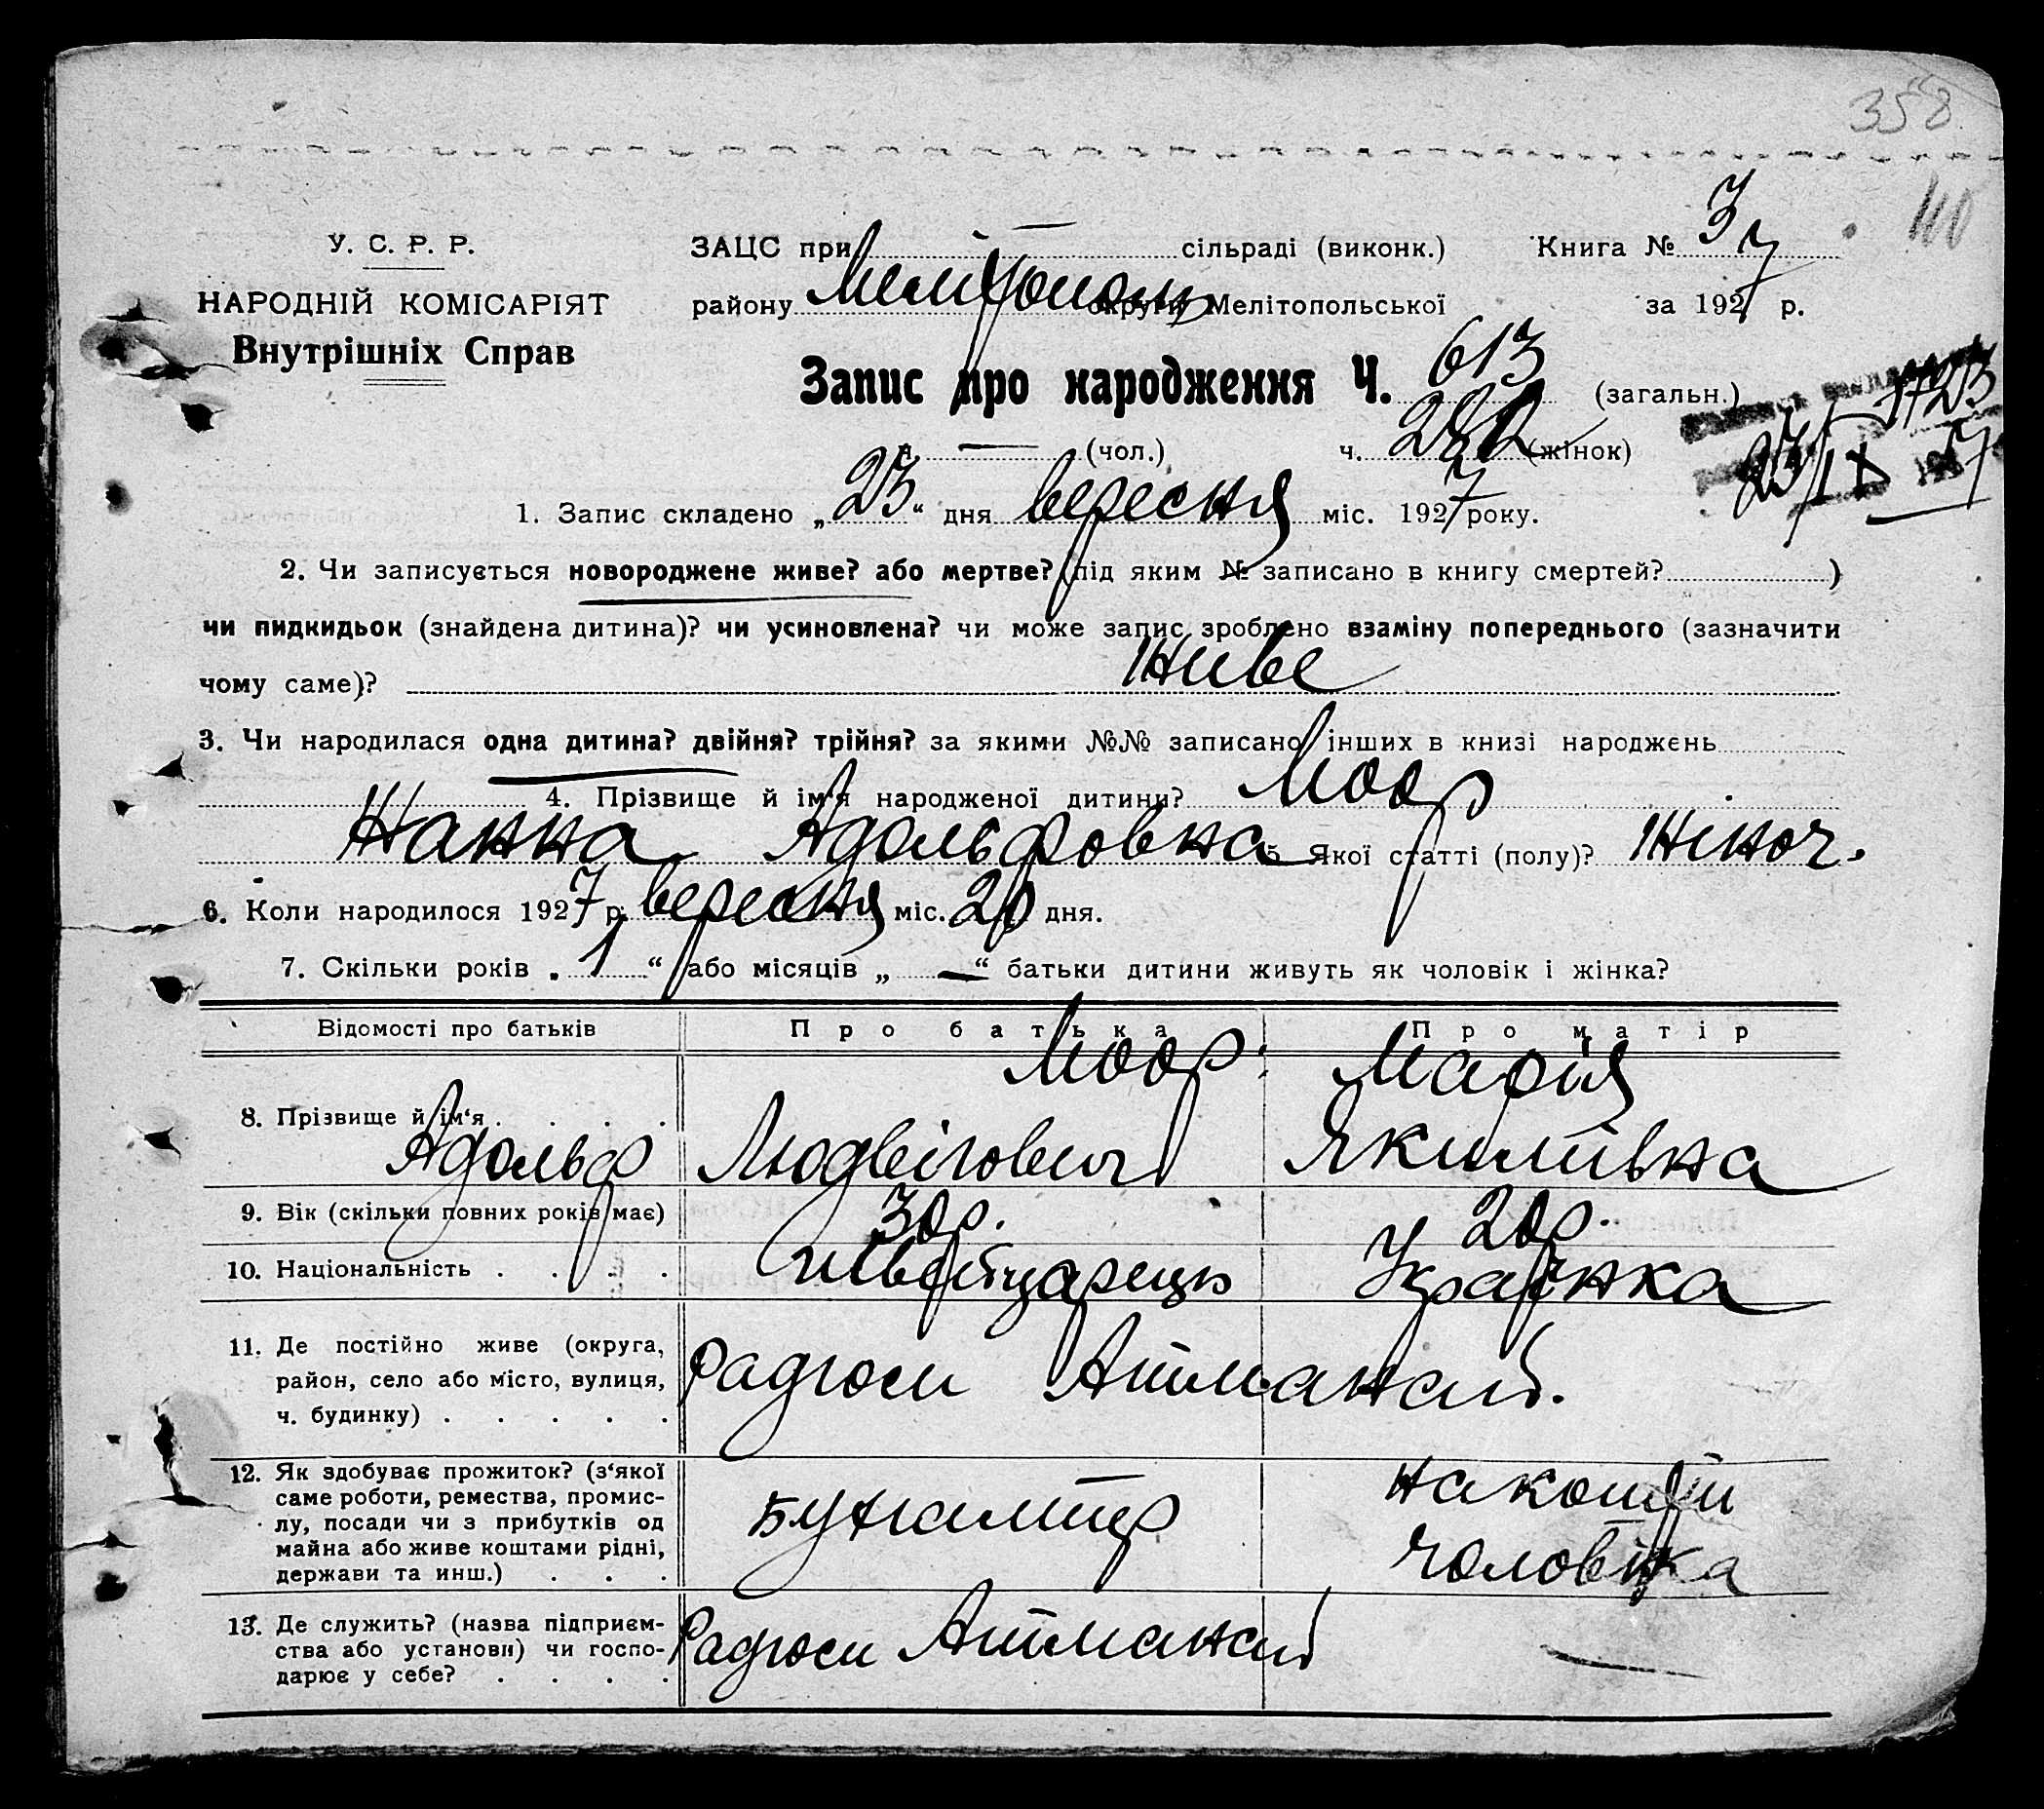 358
110
У. С. Р. Р.
НАРОДНІЙ КОМІСАРІЯТ
Внутрішніх Справ
ЗАЦС при — сільраді (виконк.) Книга № 3/7
району Мелітополь округи Мелітопольської за 1927 р.
Запис про народження Ч. 613 (загальн.)
ч. — (чол.) ч. 282 (жінок)
1723
23/IX 1927
1. Запис складено „23“ дня вересня міс. 1927 року.
2. Чи записується новороджене живе? або мертве? (під яким № записано в книгу смертей? )
чи пидкидьок (знайдена дитина)? чи усиновлена? чи може запис зроблено взаміну попереднього (зазначити
чому саме)? Живе
3. Чи народилася одна дитина? двійня? трійня? за якими №№ записано інших в книзі народжень
4. Прізвище й ім‘я народженої дитини? Моор
Жанна Адольфовна 5. Якої статті (полу)? Жіноч.
6. Коли народилося 1927 р. вересня міс. 20 дня.
7. Скільки років „1“ або місяців „—“ батьки дитини живуть як чоловік і жінка?
Відомості про батьків Про батька Про матір
8. Прізвище й ім‘я Моор Адольф Людвігович Марія Якимівна
9. Вік (скільки повних років має) 30 р. 20 р.
10. Національність Швейцарець Українка
11. Де постійно живе (округа,
район, село або місто, вулиця,
ч. будинку) Радгосп Атманай.
12. Як здобуває прожиток? (з‘якої
саме роботи, ремества, промис-
лу, посади чи з прибутків од
майна або живе коштами рідні,
держави та инш.) Бухгалтер на кошти чоловіка
13. Де служить? (назва підприєм-
ства або установи) чи госпо-
дарює у себе? Радгосп Атманай —